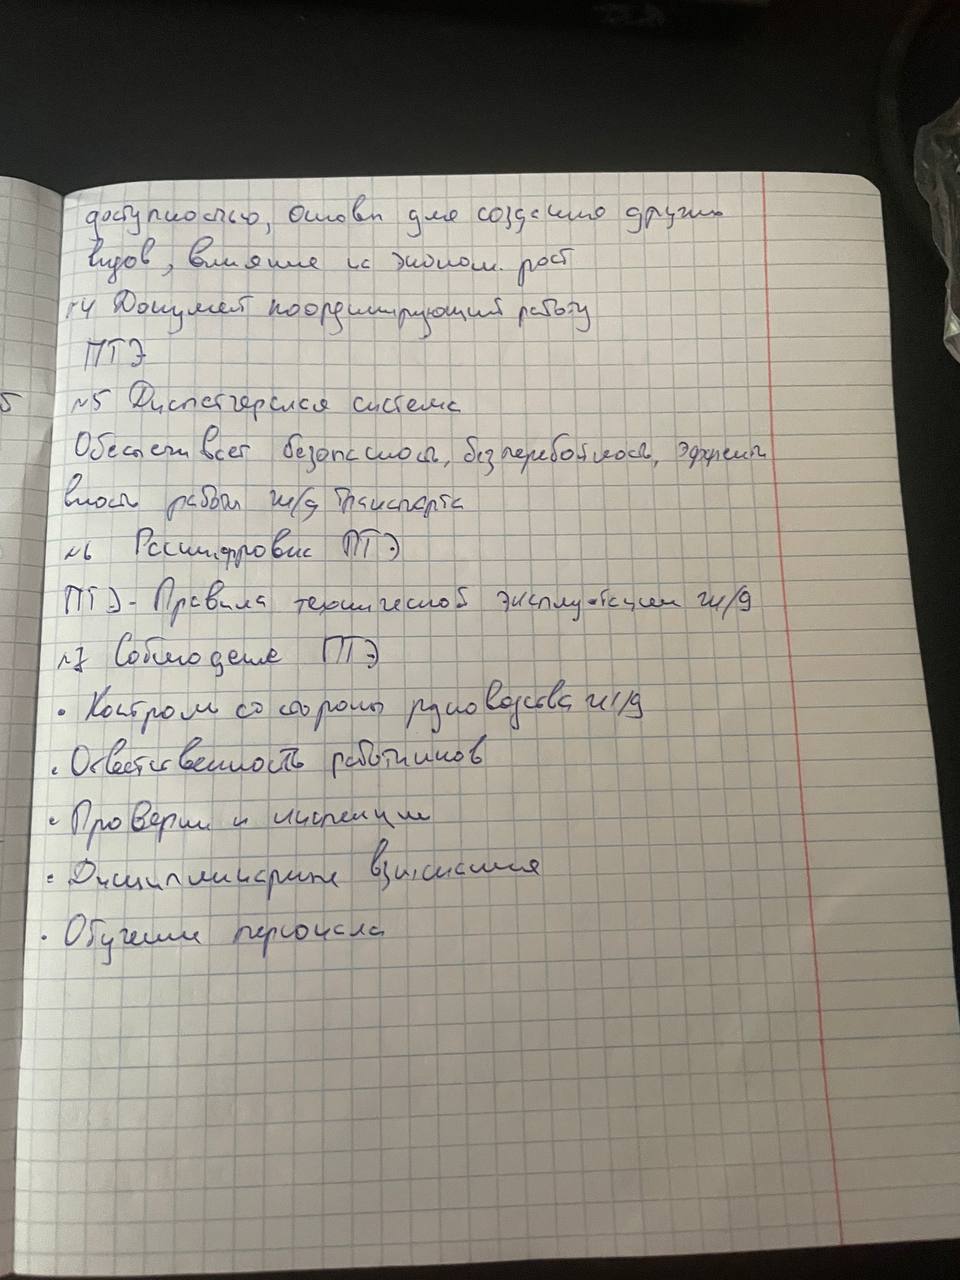 доступностью, основа для создания других
видов, влияние на эконом. рост
№4 Документ координирующий работу
ПТЭ
№5 Диспетчерская система
Обеспечивает безопасность, безперебойность, эффекти
вность работы ж/д транспорта
№6 Расшифровка ПТЭ
ПТЭ - Правила технической эксплуатации ж/д
№7 Соблюдение ПТЭ
• Контроль со стороны руководства ж/д
• Ответственность работников
• Проверки и инспекции
• Дисциплинарные взыскания
• Обучение персонала
5